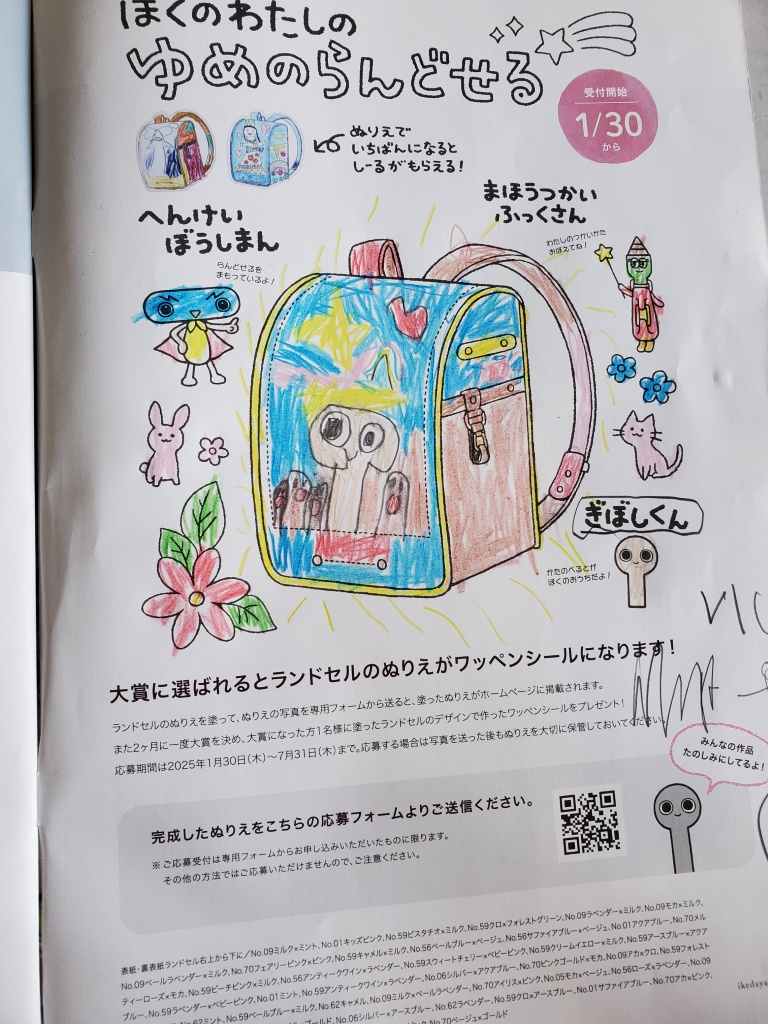 ぼくのわたしの
ゆめのらんどせる
受付開始
1/30
から
ぬりえで
いちばんになると
しーるがもらえる!
まほうつかい
ふっくさん
わたしのつかいかた
おぼえてね!
へんけい
ぼうしまん
らんどせるを
まもっているよ!
ぎぼしくん
かたのべるとが
ぼくのおうちだよ!
大賞に選ばれるとランドセルのぬりえがワッペンシールになります!
ランドセルのぬりえを塗って、ぬりえの写真を専用フォームから送ると、塗ったぬりえがホームページに掲載されます。
また2ヶ月に一度大賞を決め、大賞になった方1名様に塗ったランドセルのデザインで作ったワッペンシールをプレゼント!
応募期間は2025年1月30日(木)〜7月31日(木)まで。応募する場合は写真を送った後もぬりえを大切に保管しておいてください。
みんなの作品
たのしみにしてるよ!
完成したぬりえをこちらの応募フォームよりご送信ください。
※ご応募受付は専用フォームからお申し込みいただいたものに限ります。
その他の方法ではご応募いただけませんので、ご注意ください。
表紙・裏表紙ランドセル右上から下に/No.09ミルク×ミント、No.01キッズピンク、No.59ピスタチオ×ミルク、No.59クロ×フォレストグリーン、No.09ラベンダー×ミルク、No.09モカ×ミルク、
No.09ペールラベンダー×ミルク、No.70フェアリーピンク×ピンク、No.59キャメル×ミルク、No.56ペールブルー×ベージュ、No.56サファイアブルー×ベージュ、No.01アクアブルー、No.70メル
ティーローズ×モカ、No.59ピーチピンク×ミルク、No.56アンティークワイン×ラベンダー、No.59スウィートチェリー×ベビーピンク、No.59クリームイエロー×ミルク、No.59アースブルー×アクア
ブルー、No.59ラベンダー×ベビーピンク、No.01ミント、No.59アンティークワイン×ラベンダー、No.06シルバー×アクアブルー、No.70ピンクゴールド×モカ、No.09アカ×クロ、No.59フォレスト
ミント、No.59ペールブルー×ミルク、No.62キャメル、No.09ミルク×ペールラベンダー、No.70アイリス×ピンク、No.05モカ×ベージュ、No.56ローズ×ラベンダー、No.09
ゴールド、No.06シルバー×アースブルー、No.62ラベンダー、No.59クロ×アースブルー、No.01サファイアブルー、No.70アカ×ピンク、
No.70ベージュ×ゴールド
ikeda